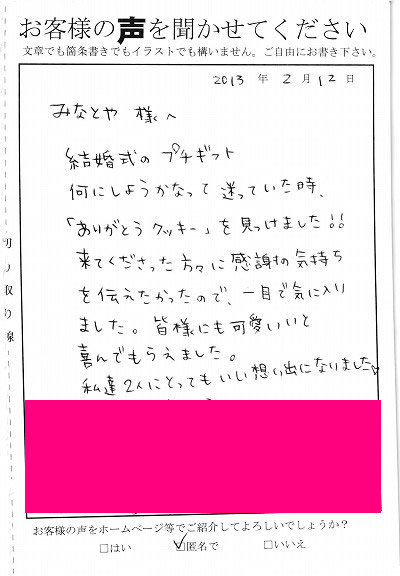 お客様の声を聞かせてください
文章でも箇条書きでもイラストでも構いません。ご自由にお書き下さい。
2013 年 2 月 12 日
みなとや 様へ
結婚式の プチギフト
何にしようかなって 迷っていた時、
「ありがとうクッキー」を見つけました!!
来てくださった方々に感謝の気持ち
を伝えたかったので、一目で気に入り
ました。皆様にも可愛いいと
喜んでもらえました。
私達2人にとってもいい想い出になりました♡
切り取り線
お客様の声をホームページ等でご紹介してよろしいでしょうか？
□はい ☑匿名で □いいえ